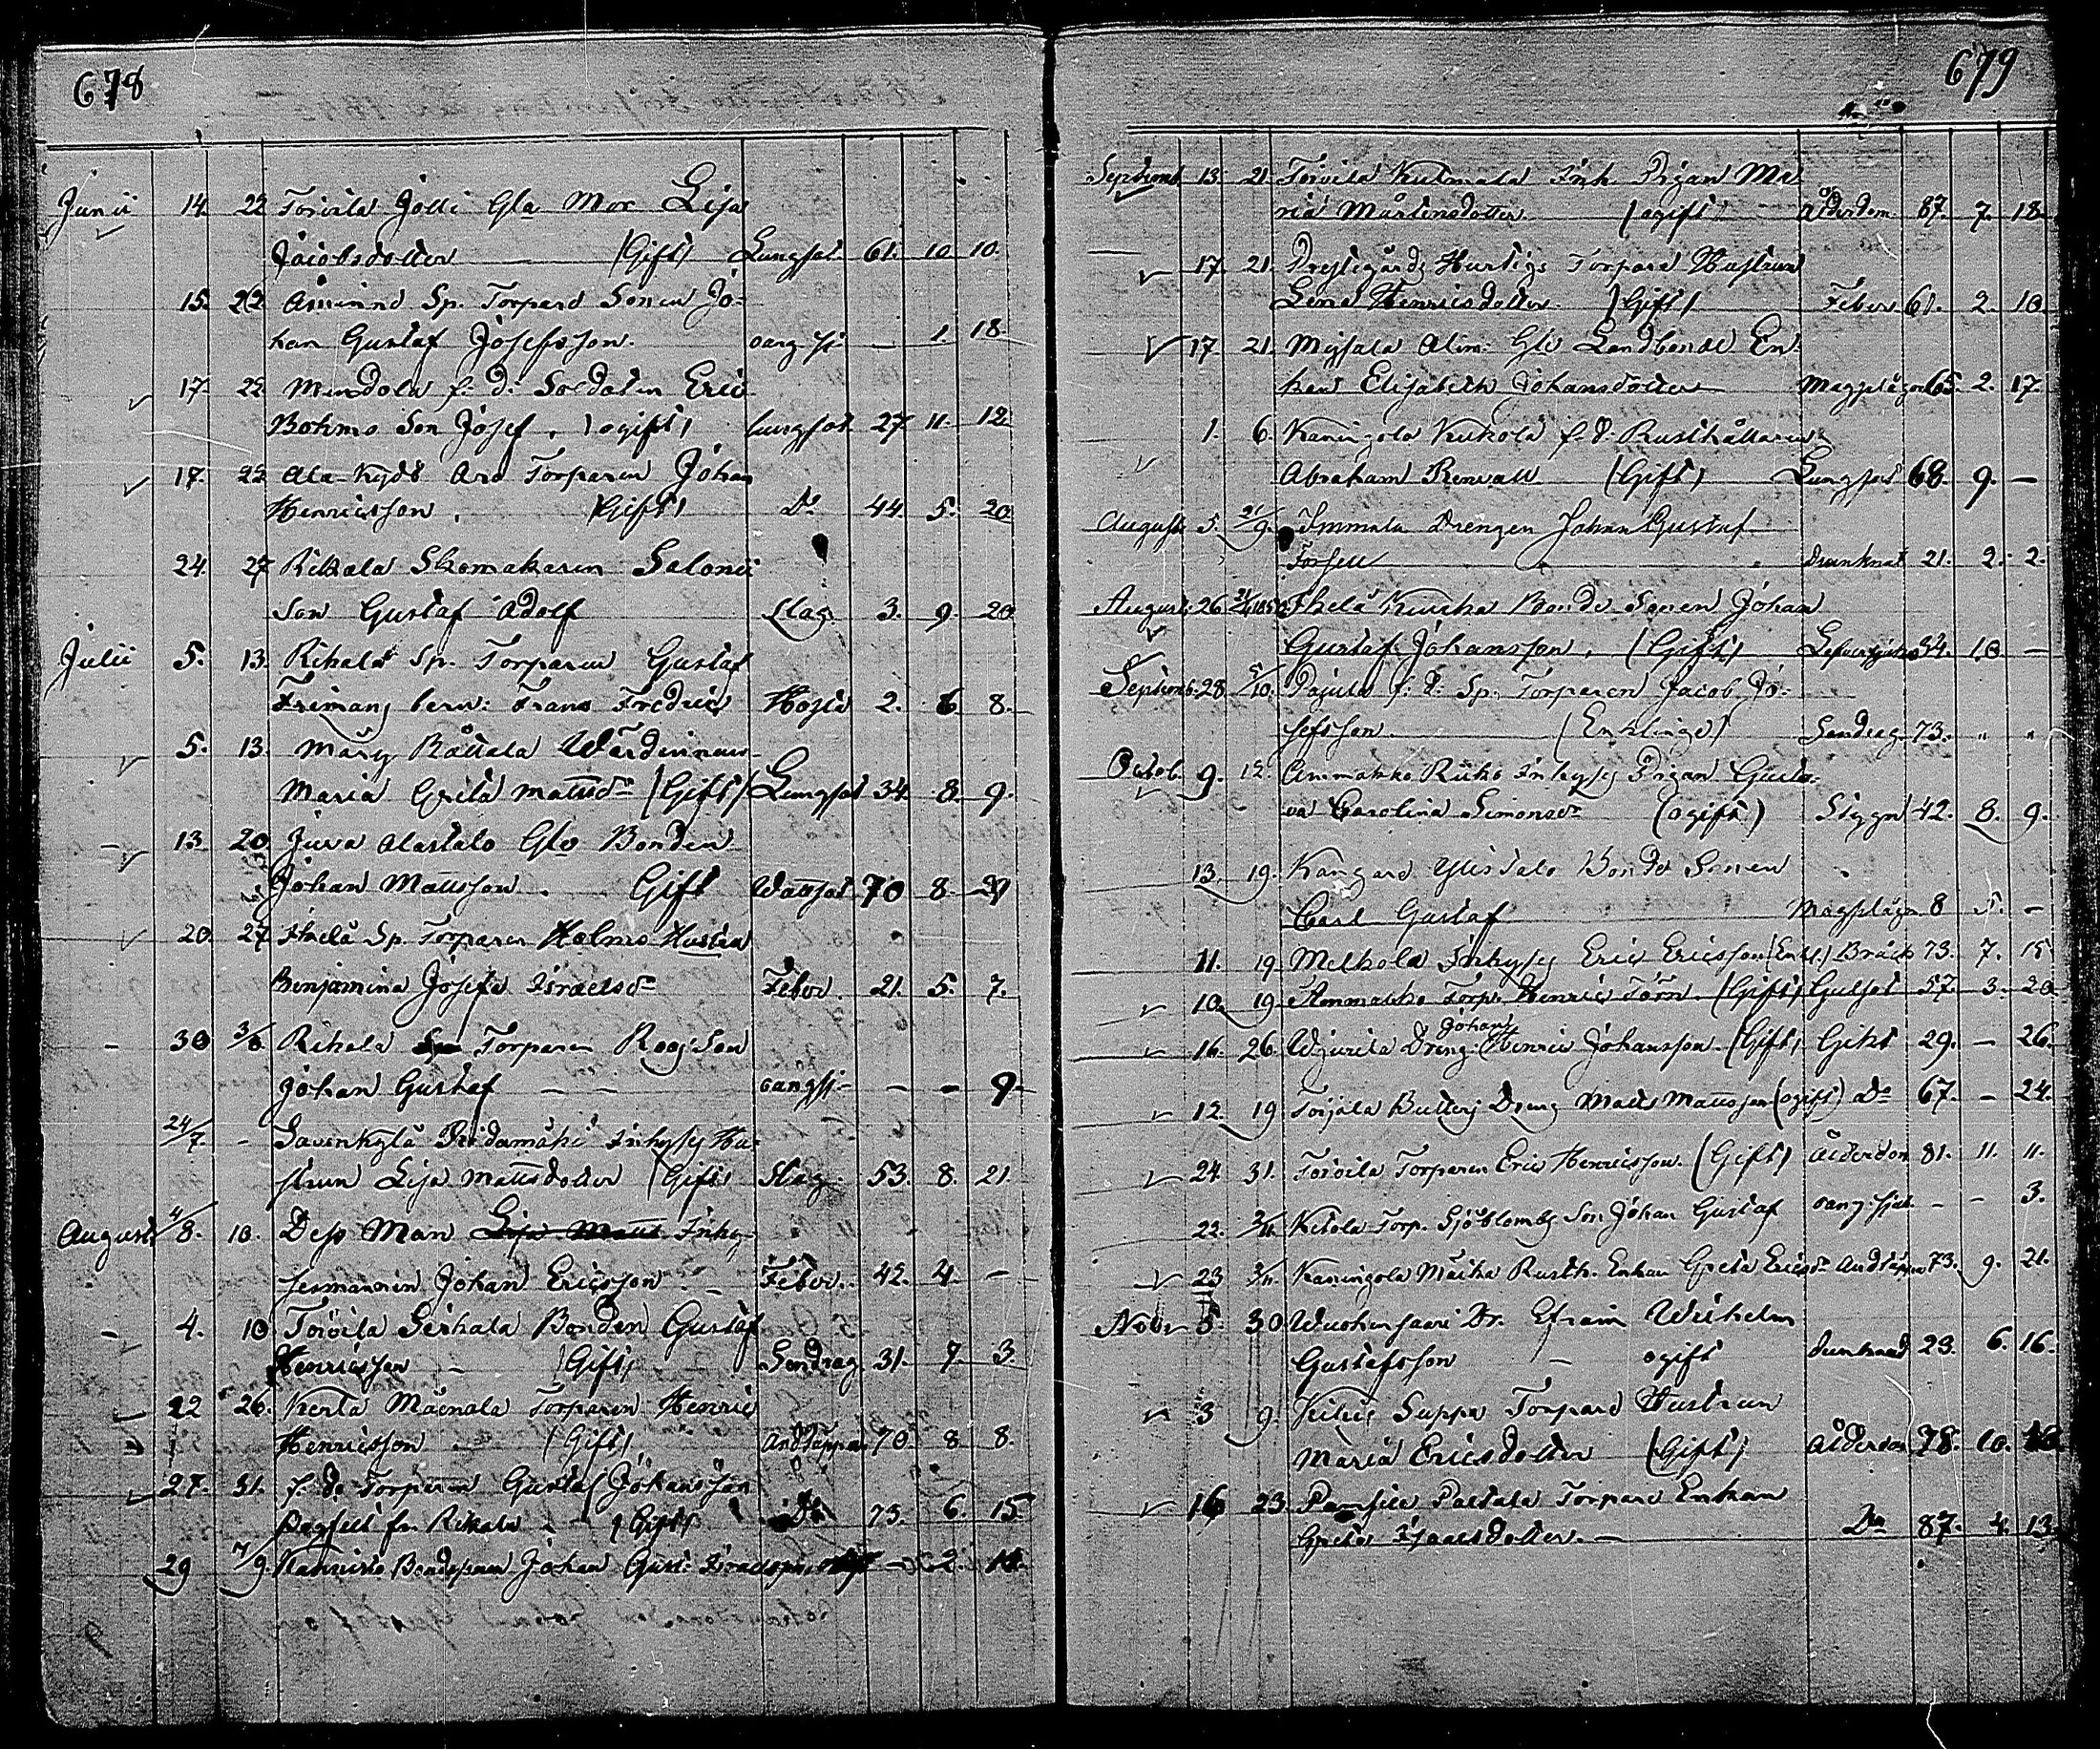 678
Junii 14. 22 Toivila Jolli Gla Mor Lisa
Jacobsdotter (Gift) Lungsot 61. 10 10.
15. 22 Sp. Torpare Sonen Jo-
han Gustaf Josefsson. oang. sj. — 1. 18
17. 22 Mendola f. d. Soldaten Eric
Bohms Son Josef, (ogift) lungsot 27 11. 12
17. 22 Ala Torparen Johan
Henricsson, (Gift) Do 44. 5. 20
24. 27 Rikala Skomakaren Saloni
Son Gustaf Adolf Slag 3. 9. 20
Julii 5. 13. Rikala Sp. Torparen Gustaf
Frimans barn: Frans Fredric Hosta 2. 6 8.
5. 13. Märy Rättala Värdinnan
Maria Greta Mattsdr (Gift) Lungsot 34 8. 9.
13 20 Juva Alastalo Gle Bonden
Johan Mattsson. Gift Wattsot 70 8
20. 27 Sp. Torparen Holms Hustru
Benjamina Josefa Israelsdr Feber. 21. 5. 7.
30 3/8 Rikala Torparen Roos Son
Johan Gustaf — — oang sj — — 9
24/7. - Savenkylä Inhyses Hu-
strun Lisa Mattsdotter (Gift) Slag 53. 8. 21.
August 4/8. 10. Dess Man Inhy-
sesmannen Johan Ericsson Feber. 42. 4. —
4. 10 Toivila Seikala Bonden Gustaf
Henricsson — (Gift) Sendrag 31. 7. 3.
22 26. Kerta Mäenala Torparen Henric
Henricsson (Gift) Andtäppan 70. 8 8.
27. 31. f. d. Torparen Gustaf Johansson
fr. Rikala (Gift) Do 73. 6. 15.
29 7/9. Bondesonen Johan Gust. — 2.
679
Septemb. 13. 21. Toivila Kulmala Inh. Pigan Ma-
ria Mårtensdotter (ogift) Ålderdom 87. 7. 18
17. 21. Prestegårds Hurtigs Torpare Hustrun
Lena Henricsdotter (Gift) Feber 61. 2. 10
17 21. Gle Landbonde En-
kan Elisabeth Johansdotter Magplågor 65 2. 17.
1. 6. Kaningola Kukola f. d. Rusthållaren
Abraham Renvall (Gift) Lungsot 68. 9. —
August 5. 21/9. Immala Drengen Johan Gustaf
Forsell drunknat 21. 2. 2.
August 26 Bonde Sonen Johan
Gustaf Johansson, (Gift) 10. —
Septemb. 28. 5/10. Pajula f. d. Sp. Torparen Jacob Jo-
sefsson (Enkling) Sendrag 73. " "
Octob. 9. 12. Ammakko Inhyses Pigan Gusta-
va Carolina Simonsdr (ogift) Stygn 42. 8. 9.
13. 19. Kangare Ylistalo Bonde Sonen
Carl Gustaf Magplågor 8 5. —
11. 19. Melkola Inhyses Eric Ericsson (Enkl.) Bråck 73. 7. 15
10 19 Ammakko Torp. Henric Törn. (Gift) Gulsot 57 3. 20
16. 26. Dreng. Johan Henric Johansson (Gift) Gikt 29. — 26.
12. 19 Dreng Matts Mattsson (ogift) Do 67. — 24.
24. 31. Toivila Torparen Eric Henricsson. (Gift) Ålderdom 81. 11. 11.
22. 2/11. Ketola Torp. Sjöbloms Son Johan Gustaf oang. sjuk — — 3.
23 2/11. Kaningola Rusth. Enkan Greta Ericsdr Andtäppa 73. 9. 21.
Nov. 5. 30 Dr. Efraim Wilhelm
Gustafsson — ogift drunknad 23. 6. 16.
3 9. Suppa Torpare Hustrun
Maria Ericsdotter (Gift) Ålderdom 78. 10.
16 23 Paltala Torpare Enkan
Greta Isaacsdotter. — Do 87. 4. 13.